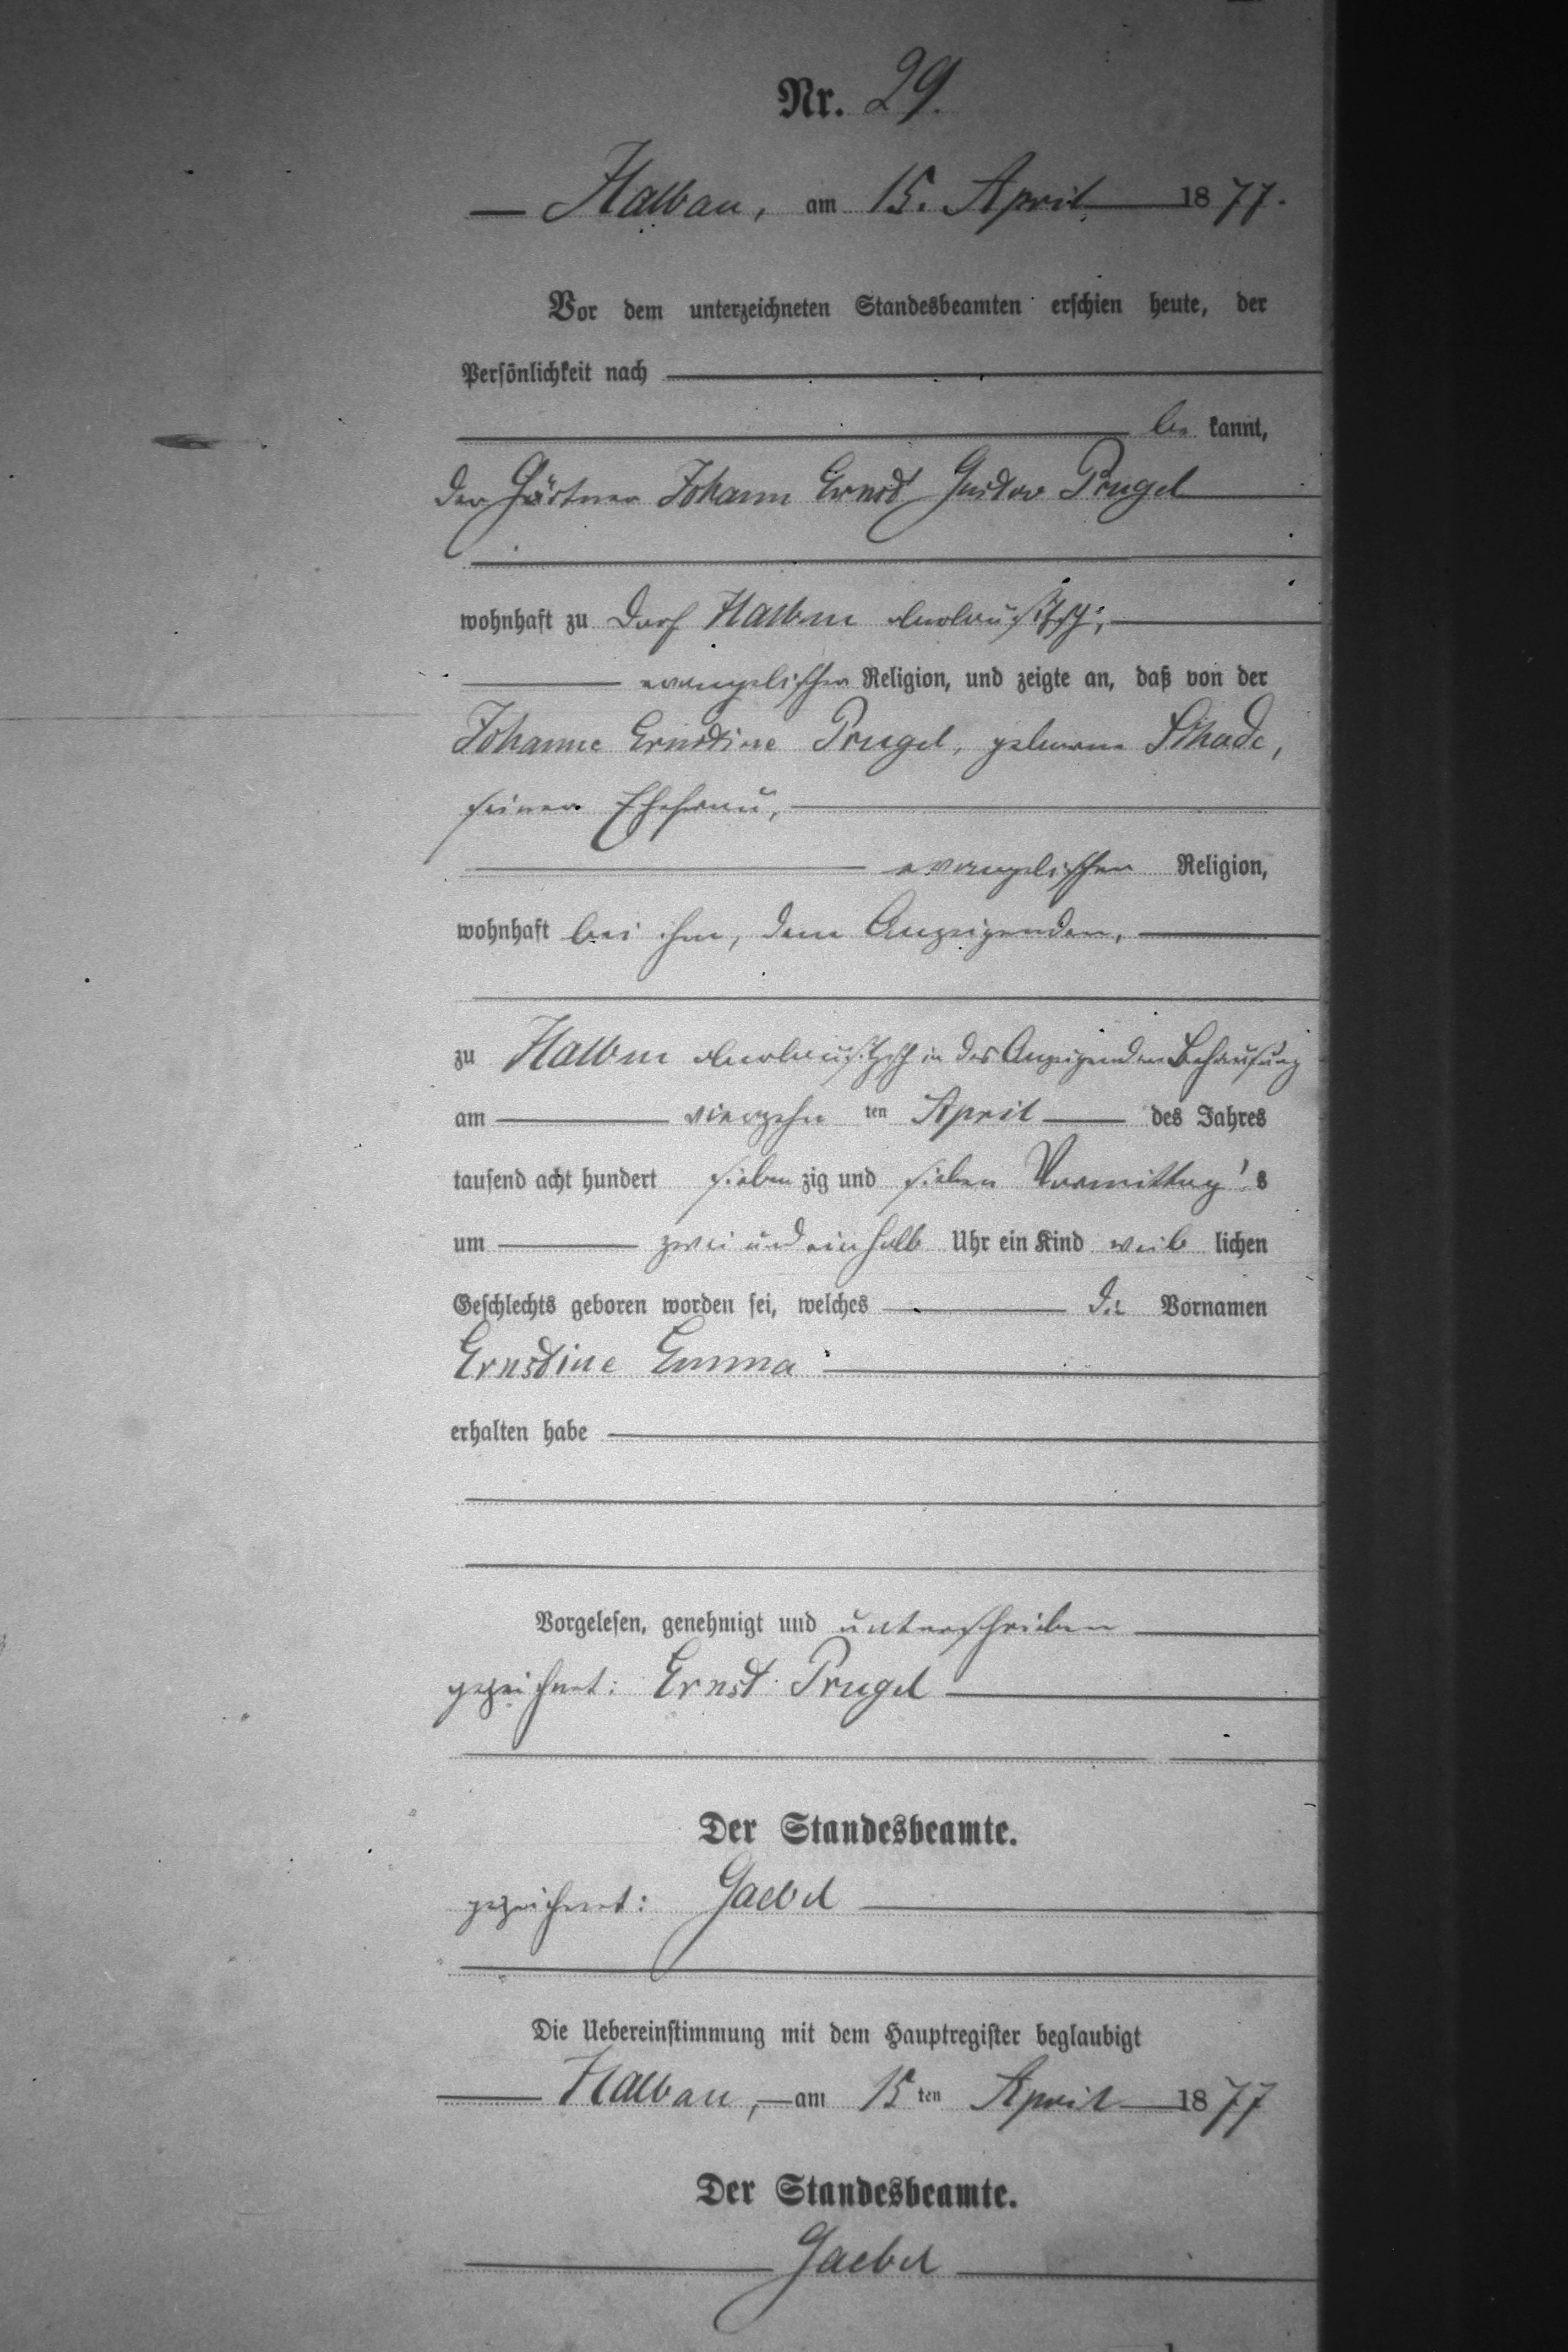 Nr. 29.
Halbau, am 15. April 1877.
Vor dem unterzeichneten Standesbeamten erschien heute, der
Persönlichkeit nach
be kannt,
der Gärtner Johann Ernst Gustav Prugel
wohnhaft zu Dorf Halbau oberlausitzsch;
evangelischer Religion, und zeigte an, daß von der
Johanne Ernstine Prugel, geborene Schade,
seiner Ehefrau,
evangelischer Religion,
wohnhaft bei ihm, dem Anzeigenden,
zu Halbau oberlausitzsch in des Anzeigenden Behausung
am vierzehn ten April des Jahres
tausend acht hundert sieben zig und sieben Vormittag's
um zwei und ein halb Uhr ein Kind weib lichen
Geschlechts geboren worden sei, welches die Vornamen
Ernstine Emma
erhalten habe
Vorgelesen, genehmigt und unterschrieben
gezeichnet: Ernst Prugel
Der Standesbeamte.
gezeichnet: Gaebel
Die Uebereinstimmung mit dem Hauptregister beglaubigt
Halbau, am 15 ten April 1877
Der Standesbeamte.
Gaebel